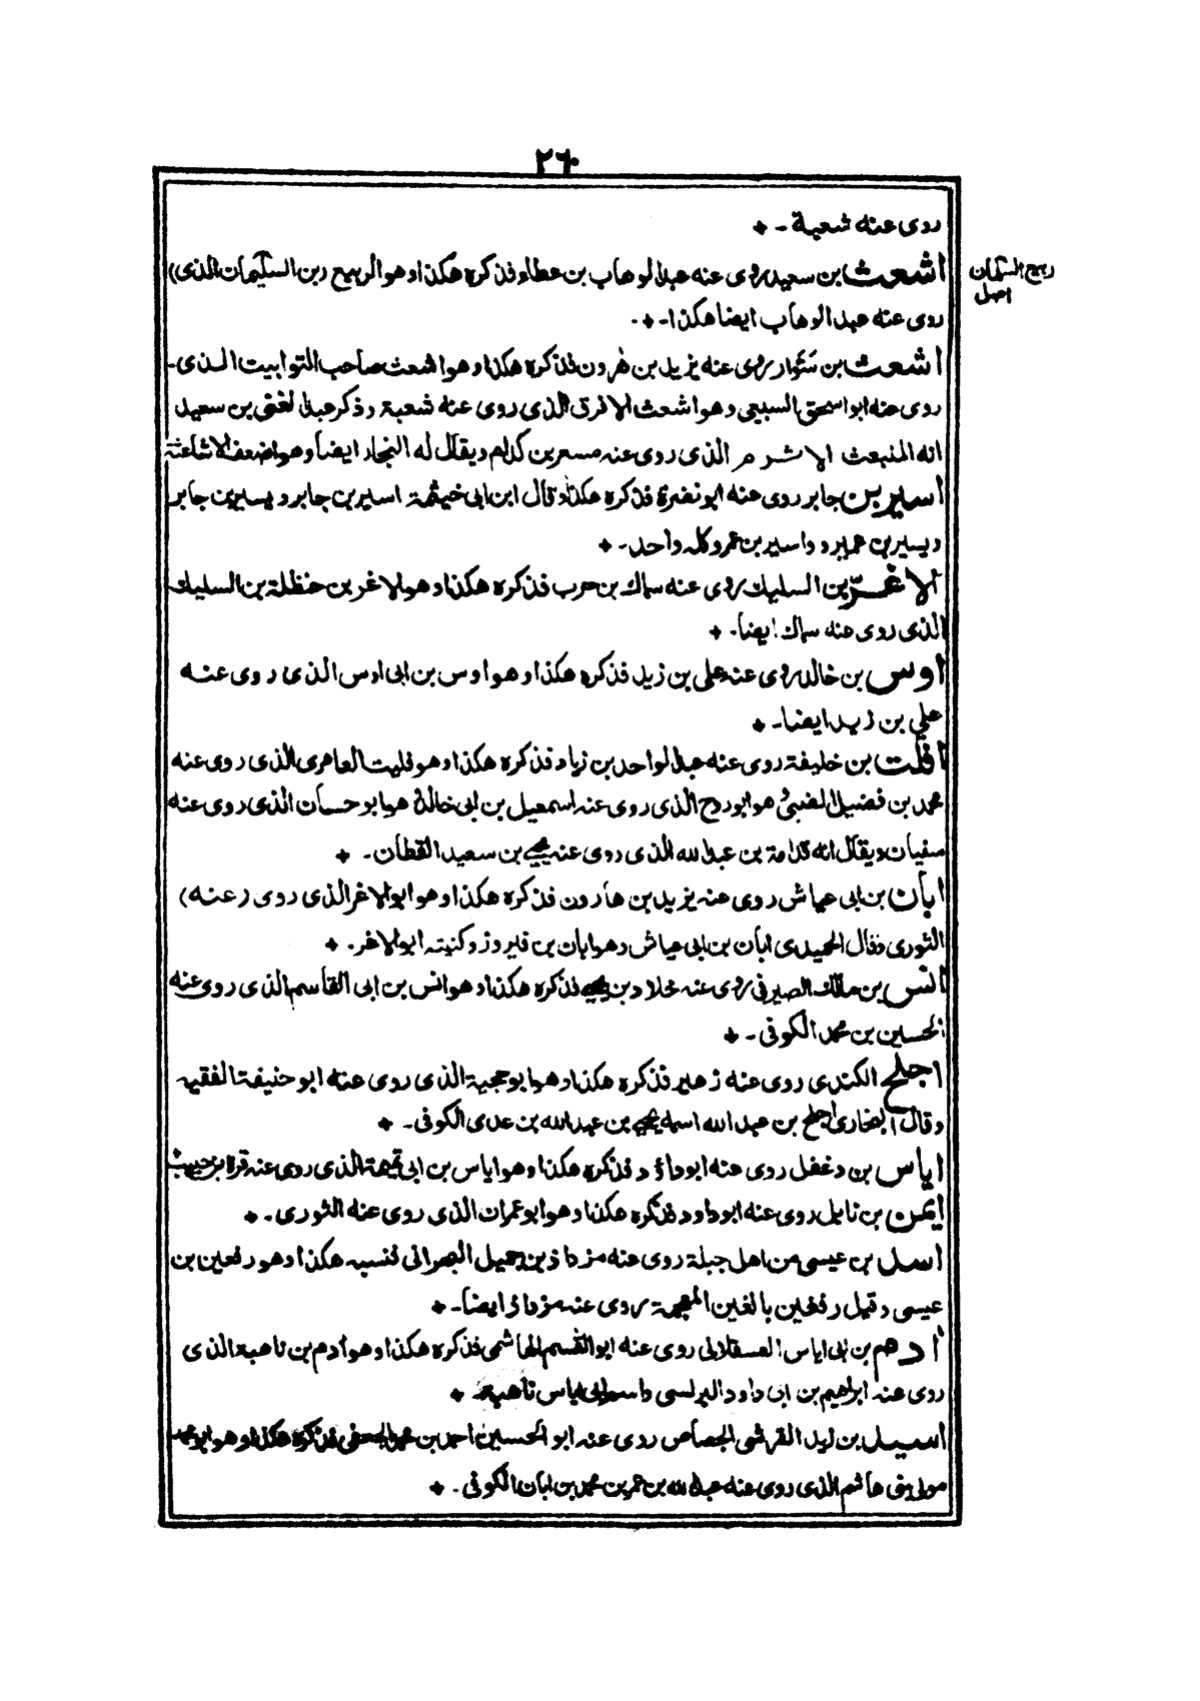 ٢٦٠
روى عنه شعبة -
اشعث بن سعيد روى عنه عبد الوهاب بن عطاء فذكره هكذا وهو الربيع (بن السليمان الذى)
ربيع السلمان
اصل
روى عنه عبد الوهاب ايضا هكذا -
اشعث بن سَوّار روى عنه يزيد بن هٰرون فذكره هكذا وهو اشعث صاحب التوابيت الذى -
روى عنه ابو اسحق السبيعى وهو اشعث الافرق الذى روى عنه شعبة وذكر عبد الغنى بن سعيد
انه المنبعث الاشرم الذى روى عنه مسعر بن كدام ويقال له النجار ايضا وهو اضعف الاشاعثة
اسير بن جابر روى عنه ابو نضرة فذكره هكذا وقال ابن ابى خيثمة اسير بن جابر ويسير بن جابر
ويسير بن عمرو واسير بن عمرو كله واحد -
الاغرّ بن السليك روى عنه سماك بن حرب فذكره هكذا وهو الاغر بن حنظلة بن السليك
الذى روى عنه سماك ايضا -
اوس بن خالد روى عنه على بن زيد فذكره هكذا وهو اوس بن ابى اوس الذى روى عنه
على بن زيد ايضا -
افلت بن خليفة روى عنه عبد الواحد بن زياد فذكره هكذا وهو فليت العامرى الذى روى عنه
محمد بن فضيل الضبى وهو ابو روح الذى روى عنه اسمعيل بن ابى خالد وهو ابو حسان الذى روى عنه
سفيان ويقال انه قدامة بن عبد الله الذى روى عنه يحيى بن سعيد القطان -
ابان بن ابى عياش روى عنه يزيد بن هارون فذكره هكذا وهو ابو الاغر الذى روى (عنه)
الثورى فقال الحميدى ابان بن ابى عياش وهو ابان بن فيروز وكنيته ابو الاغر -
انس بن مالك الصيرفى روى عنه خلاد بن يحيى فذكره هكذا وهو انس بن ابى القاسم الذى روى عنه
الحسين بن محمد الكوفى -
اجلح الكندى روى عنه زهير فذكره هكذا وهو ابو حجية الذى روى عنه ابو حنيفة الفقيه
وقال البخارى اجلح بن عبد الله اسمه يحيى بن عبد الله بن عدى الكوفى -
اياس بن دغفل روى عنه ابو داؤد فذكره هكذا وهو اياس بن ابى تميمة الذى روى عنه قرة بن حبيب
ايمن بن نابل روى عنه ابو داود فذكره هكذا وهو ابو عمران الذى روى عنه الثورى -
اسد بن عيسى من اهل جبلة روى عنه مزداد بن جميل البهرانى فنسبه هكذا وهو رفعين بن
عيسى وقيل رفغين بالغين المعجمة روى عنه مزداد ايضا -
أدهم بن ابى اياس العسقلانى روى عنه ابو القسم الهاشمى فذكره هكذا وهو آدم بن ناهية الذى
روى عنه ابراهيم بن ابى داود البرلسى واسم ابى اياس ناهية -
اسيد بن زيد القرشى الجصاص روى عنه ابو الحسين احمد بن محمد الجعفى فذكره هكذا وهو ابو محمد
مولى بنى هاشم الذى روى عنه عبد الله بن عمر بن محمد بن ابان الكوفى -